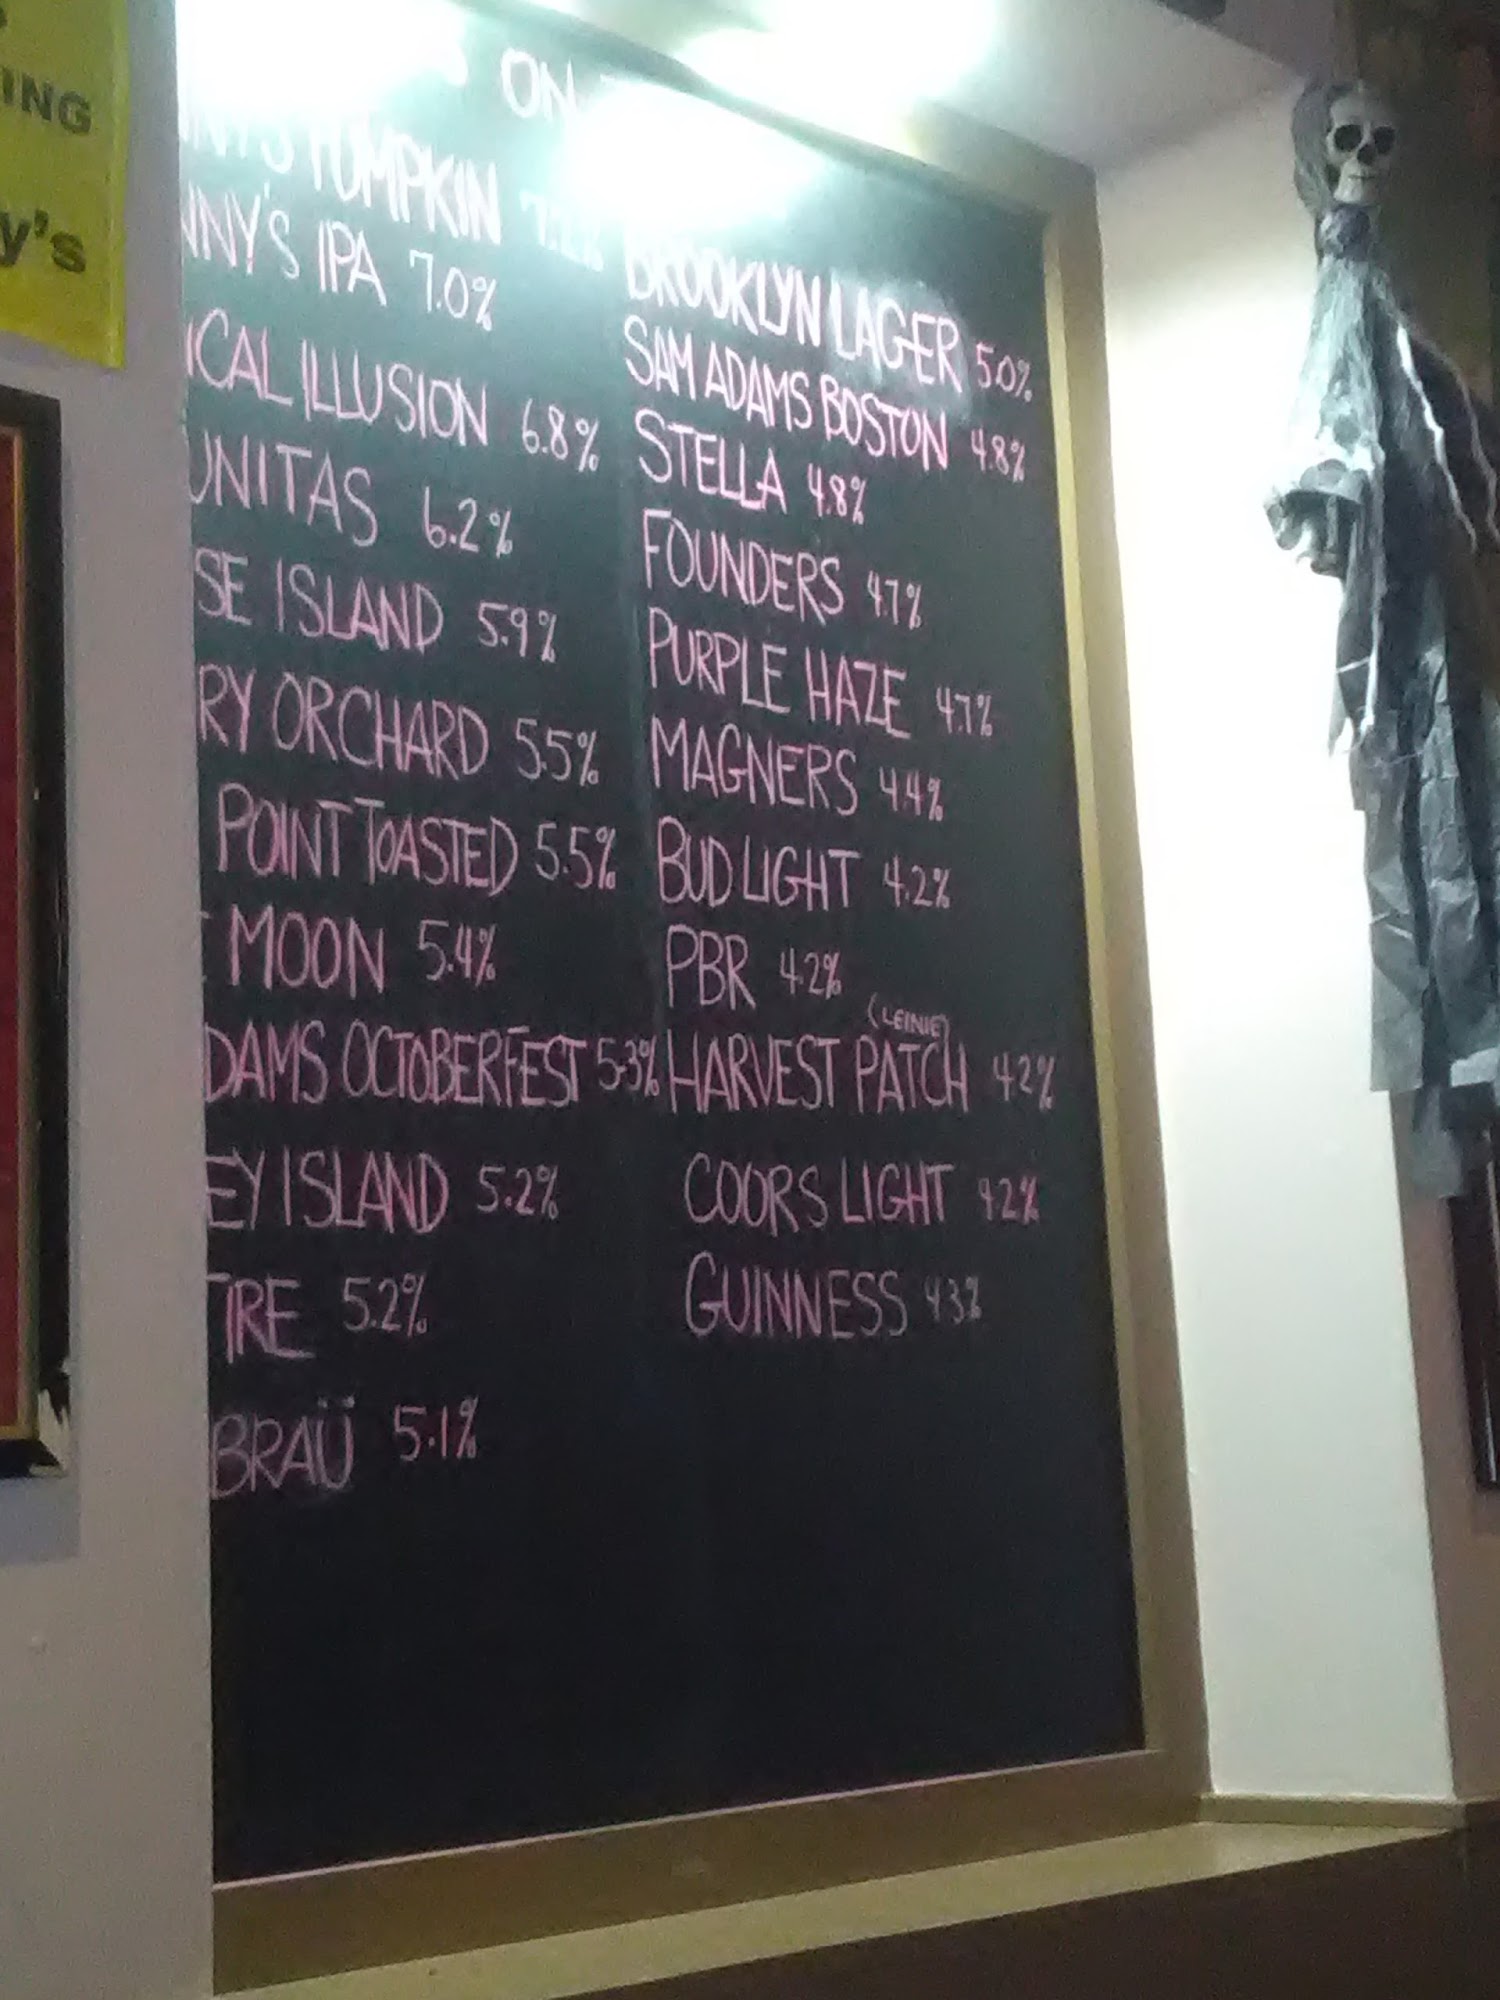 ING
y's
ON
PUMPKIN
NNY'S IPA 7.0%
ICAL ILLUSION 6.8%
UNITAS 6.2%
SE ISLAND 5.9%
RY ORCHARD 5.5%
POINT TOASTED 5.5%
MOON 5.4%
DAMS OCTOBERFEST 5.3%
EY ISLAND 5.2%
TIRE 5.2%
BRAÜ 5.1%
BROOKLYN LAGER 5.0%
SAM ADAMS BOSTON 4.8%
STELLA 4.8%
FOUNDERS 4.7%
PURPLE HAZE 4.7%
MAGNERS 4.4%
BUD LIGHT 4.2%
PBR 4.2%
(LEINIE)
HARVEST PATCH 4.2%
COORS LIGHT 4.2%
GUINNESS 4.3%